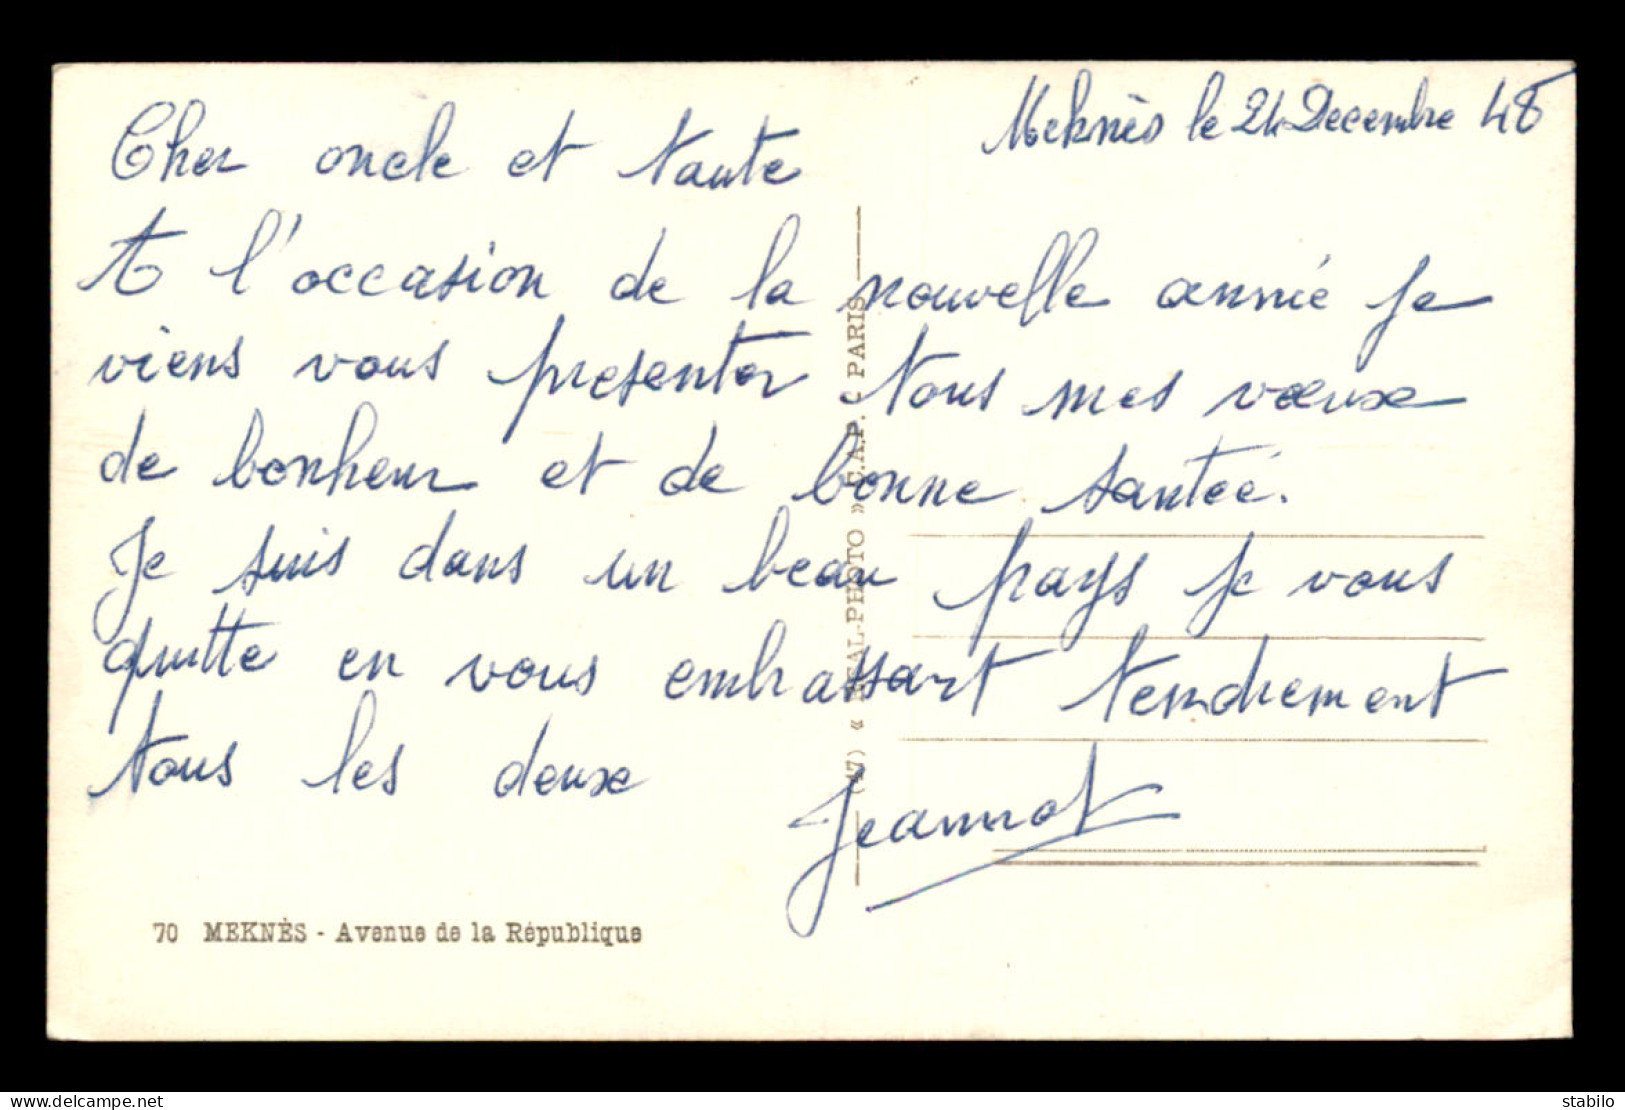 Meknès le 24 Decembre 48
Cher oncle et tante
A l'occasion de la nouvelle année je
viens vous presenter tous mes vœuxe
de bonheur et de bonne santeé.
Je suis dans un beau pays je vous
quitte en vous embrassant tendrement
tous les deuxe
Jeannot
(47) « REAL-PHOTO » C.A.P. PARIS
70 MEKNÈS - Avenue de la République
www.delcampe.net
stabilo